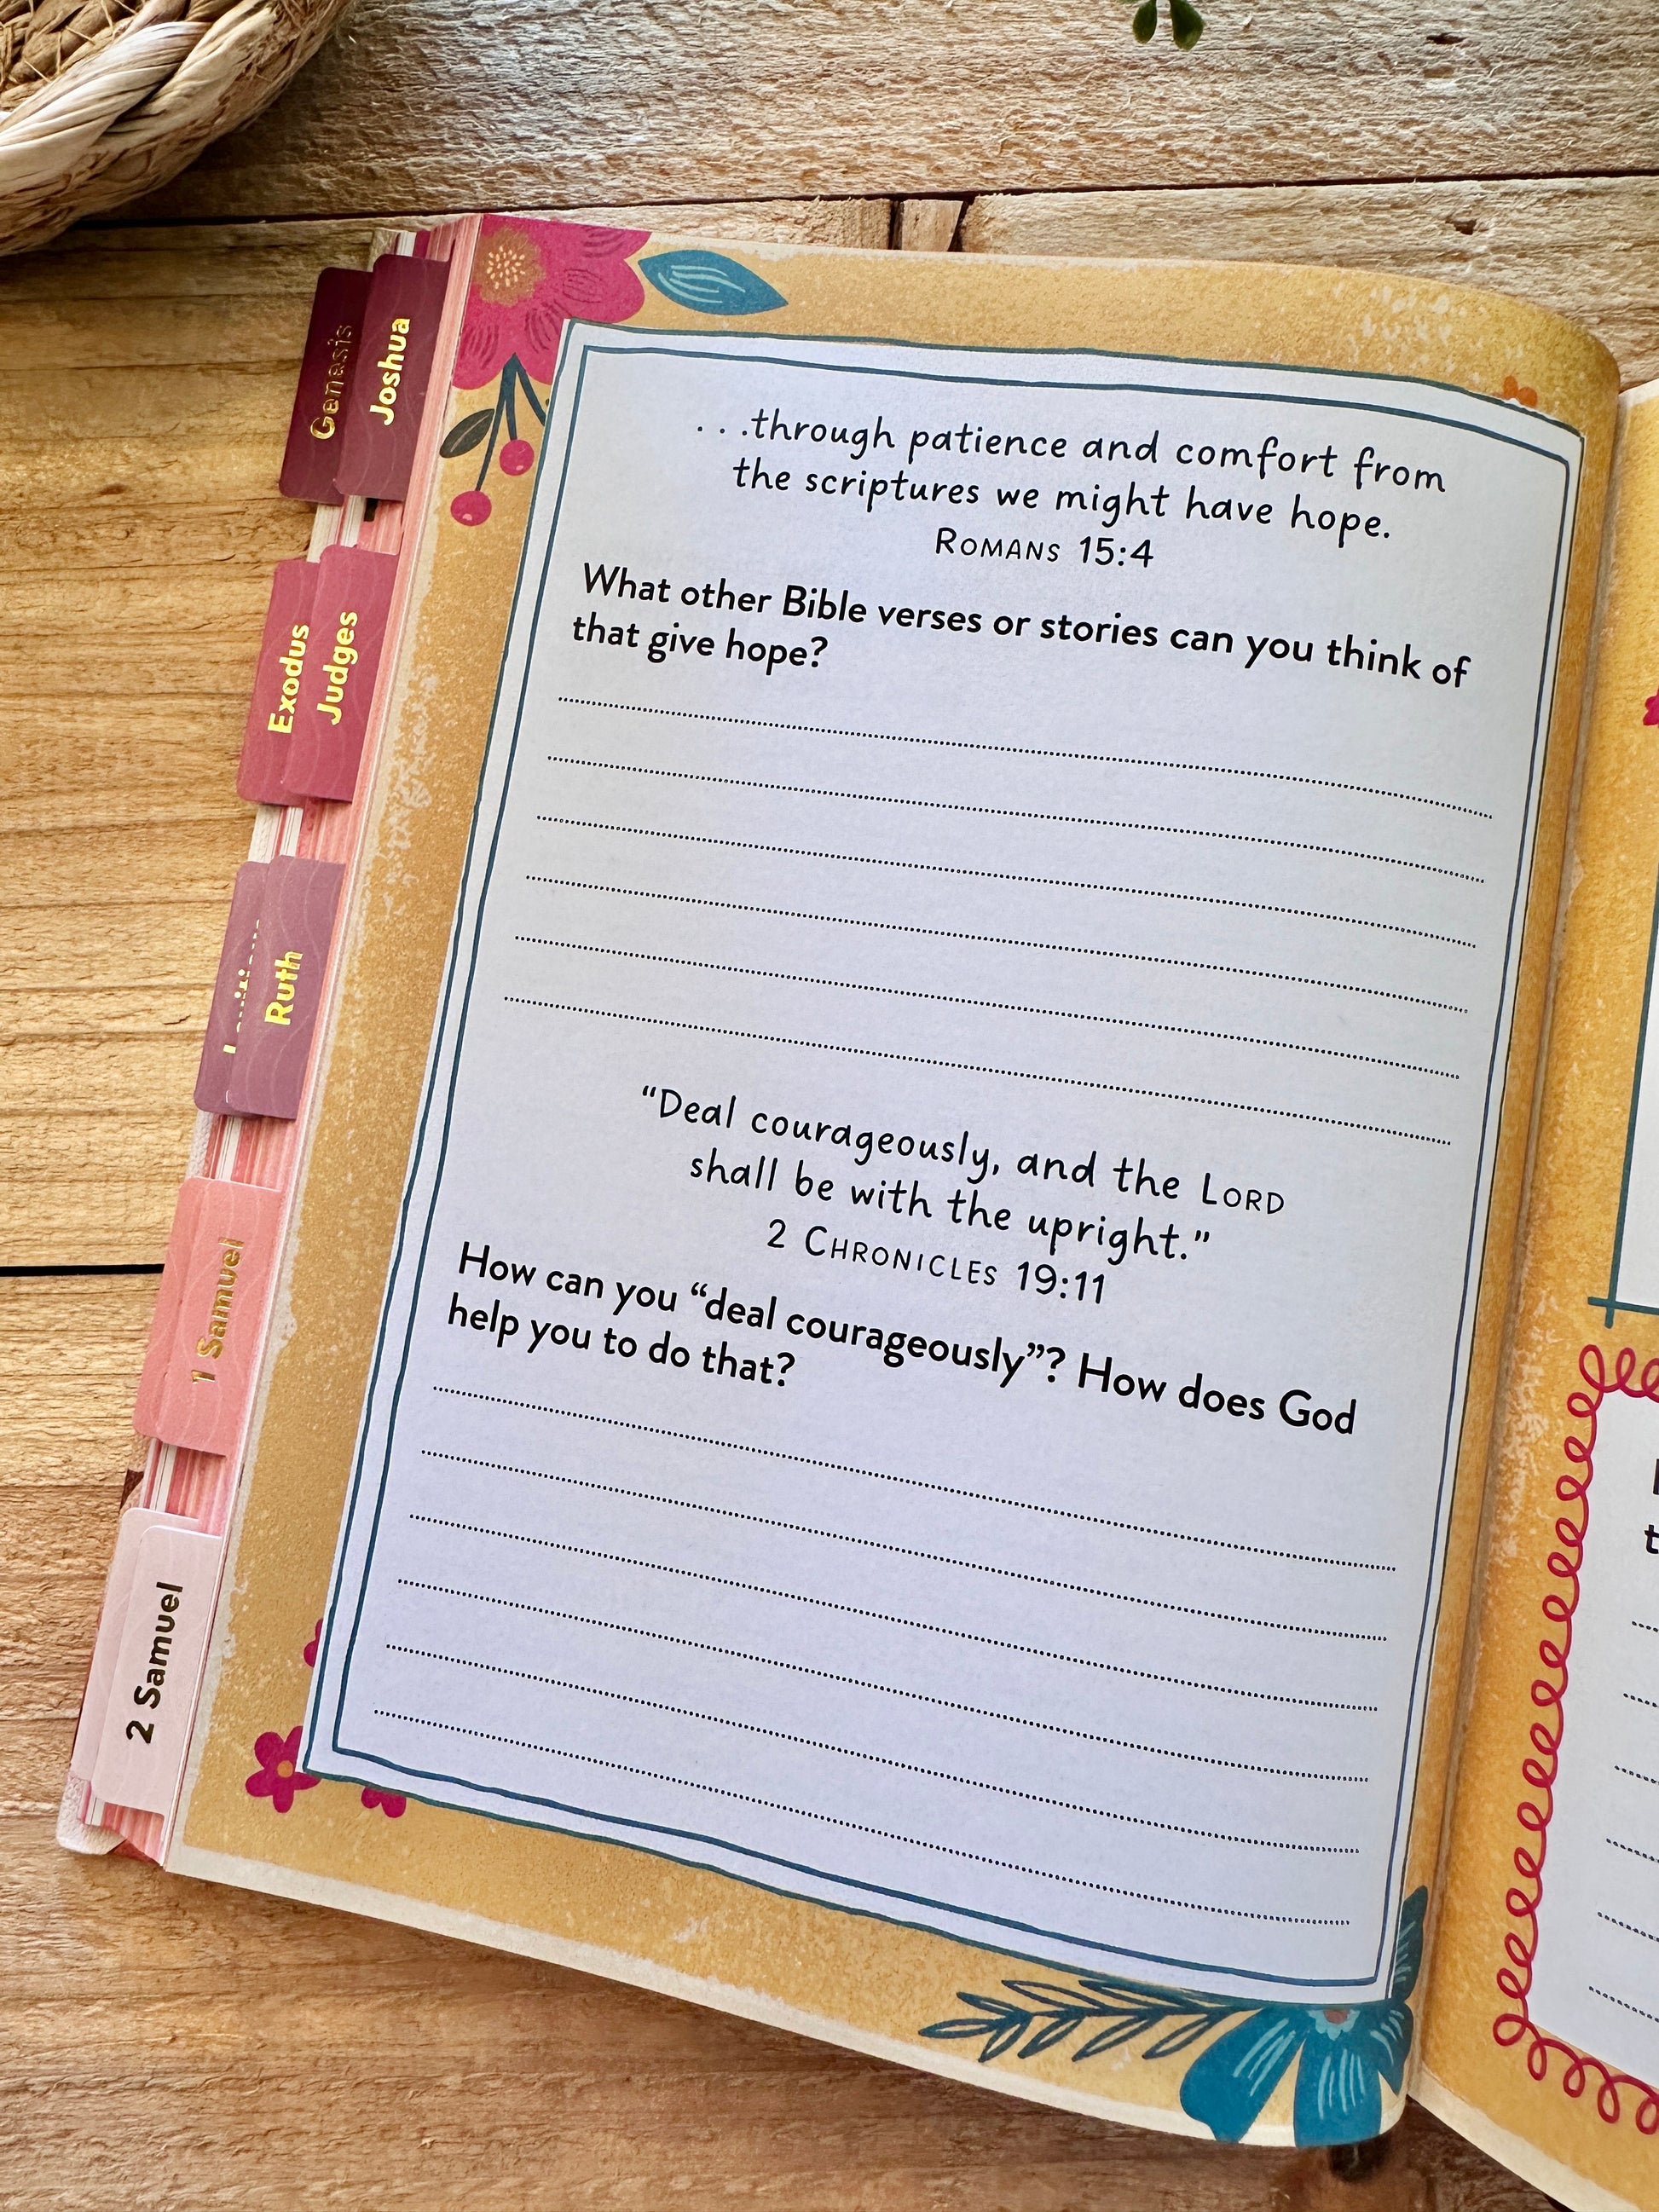 Genesis
Joshua
Exodus
Judges
Ruth
1 Samuel
2 Samuel
. . .through patience and comfort from
the scriptures we might have hope.
ROMANS 15:4
What other Bible verses or stories can you think of
that give hope?
“Deal courageously, and the LORD
shall be with the upright.”
2 CHRONICLES 19:11
How can you “deal courageously”? How does God
help you to do that?